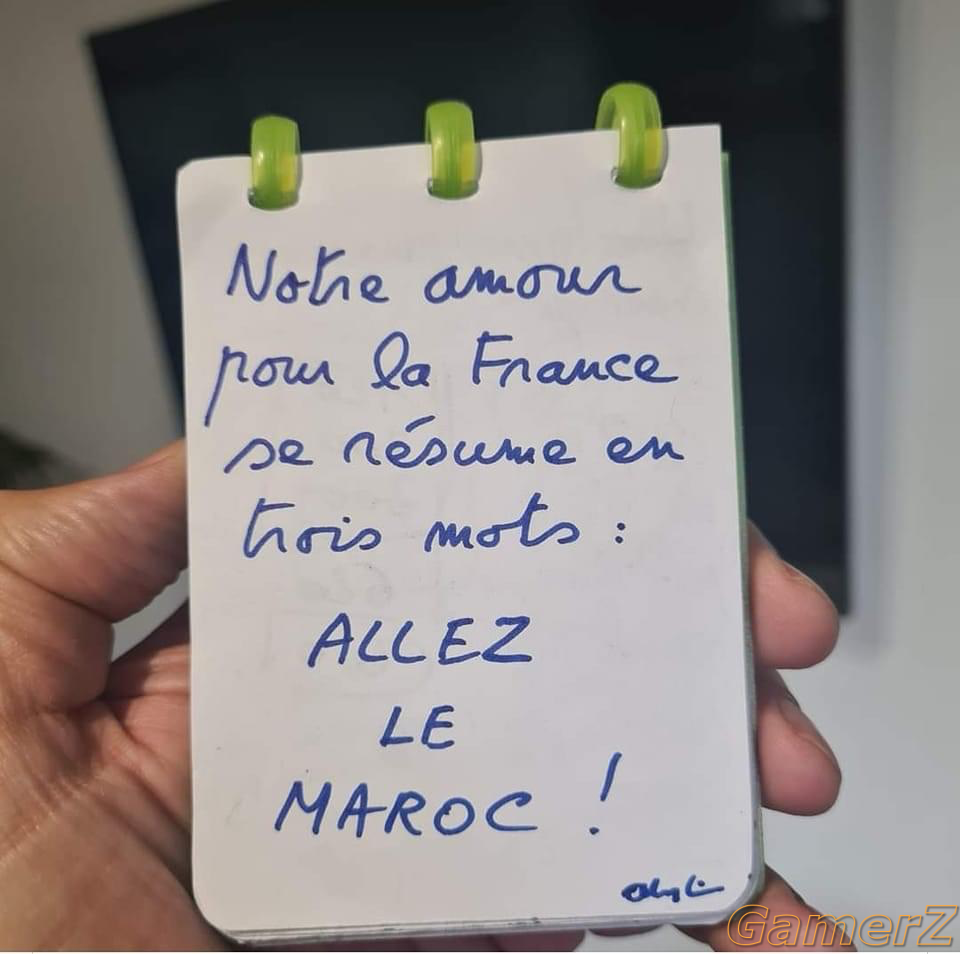 Notre amour
pour la France
se résume en
trois mots :
ALLEZ
LE
MAROC !
GamerZ